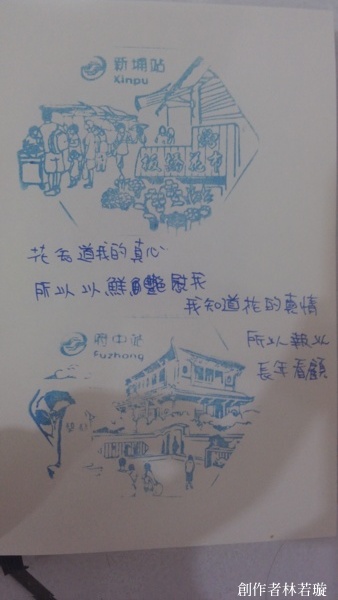 新埔站
Xinpu
板橋花市
花知道我的真心
所以以鮮艷慰我
我知道花的真情
所以報以
長年看顧
府中站
Fuzhong
創作者林若璇